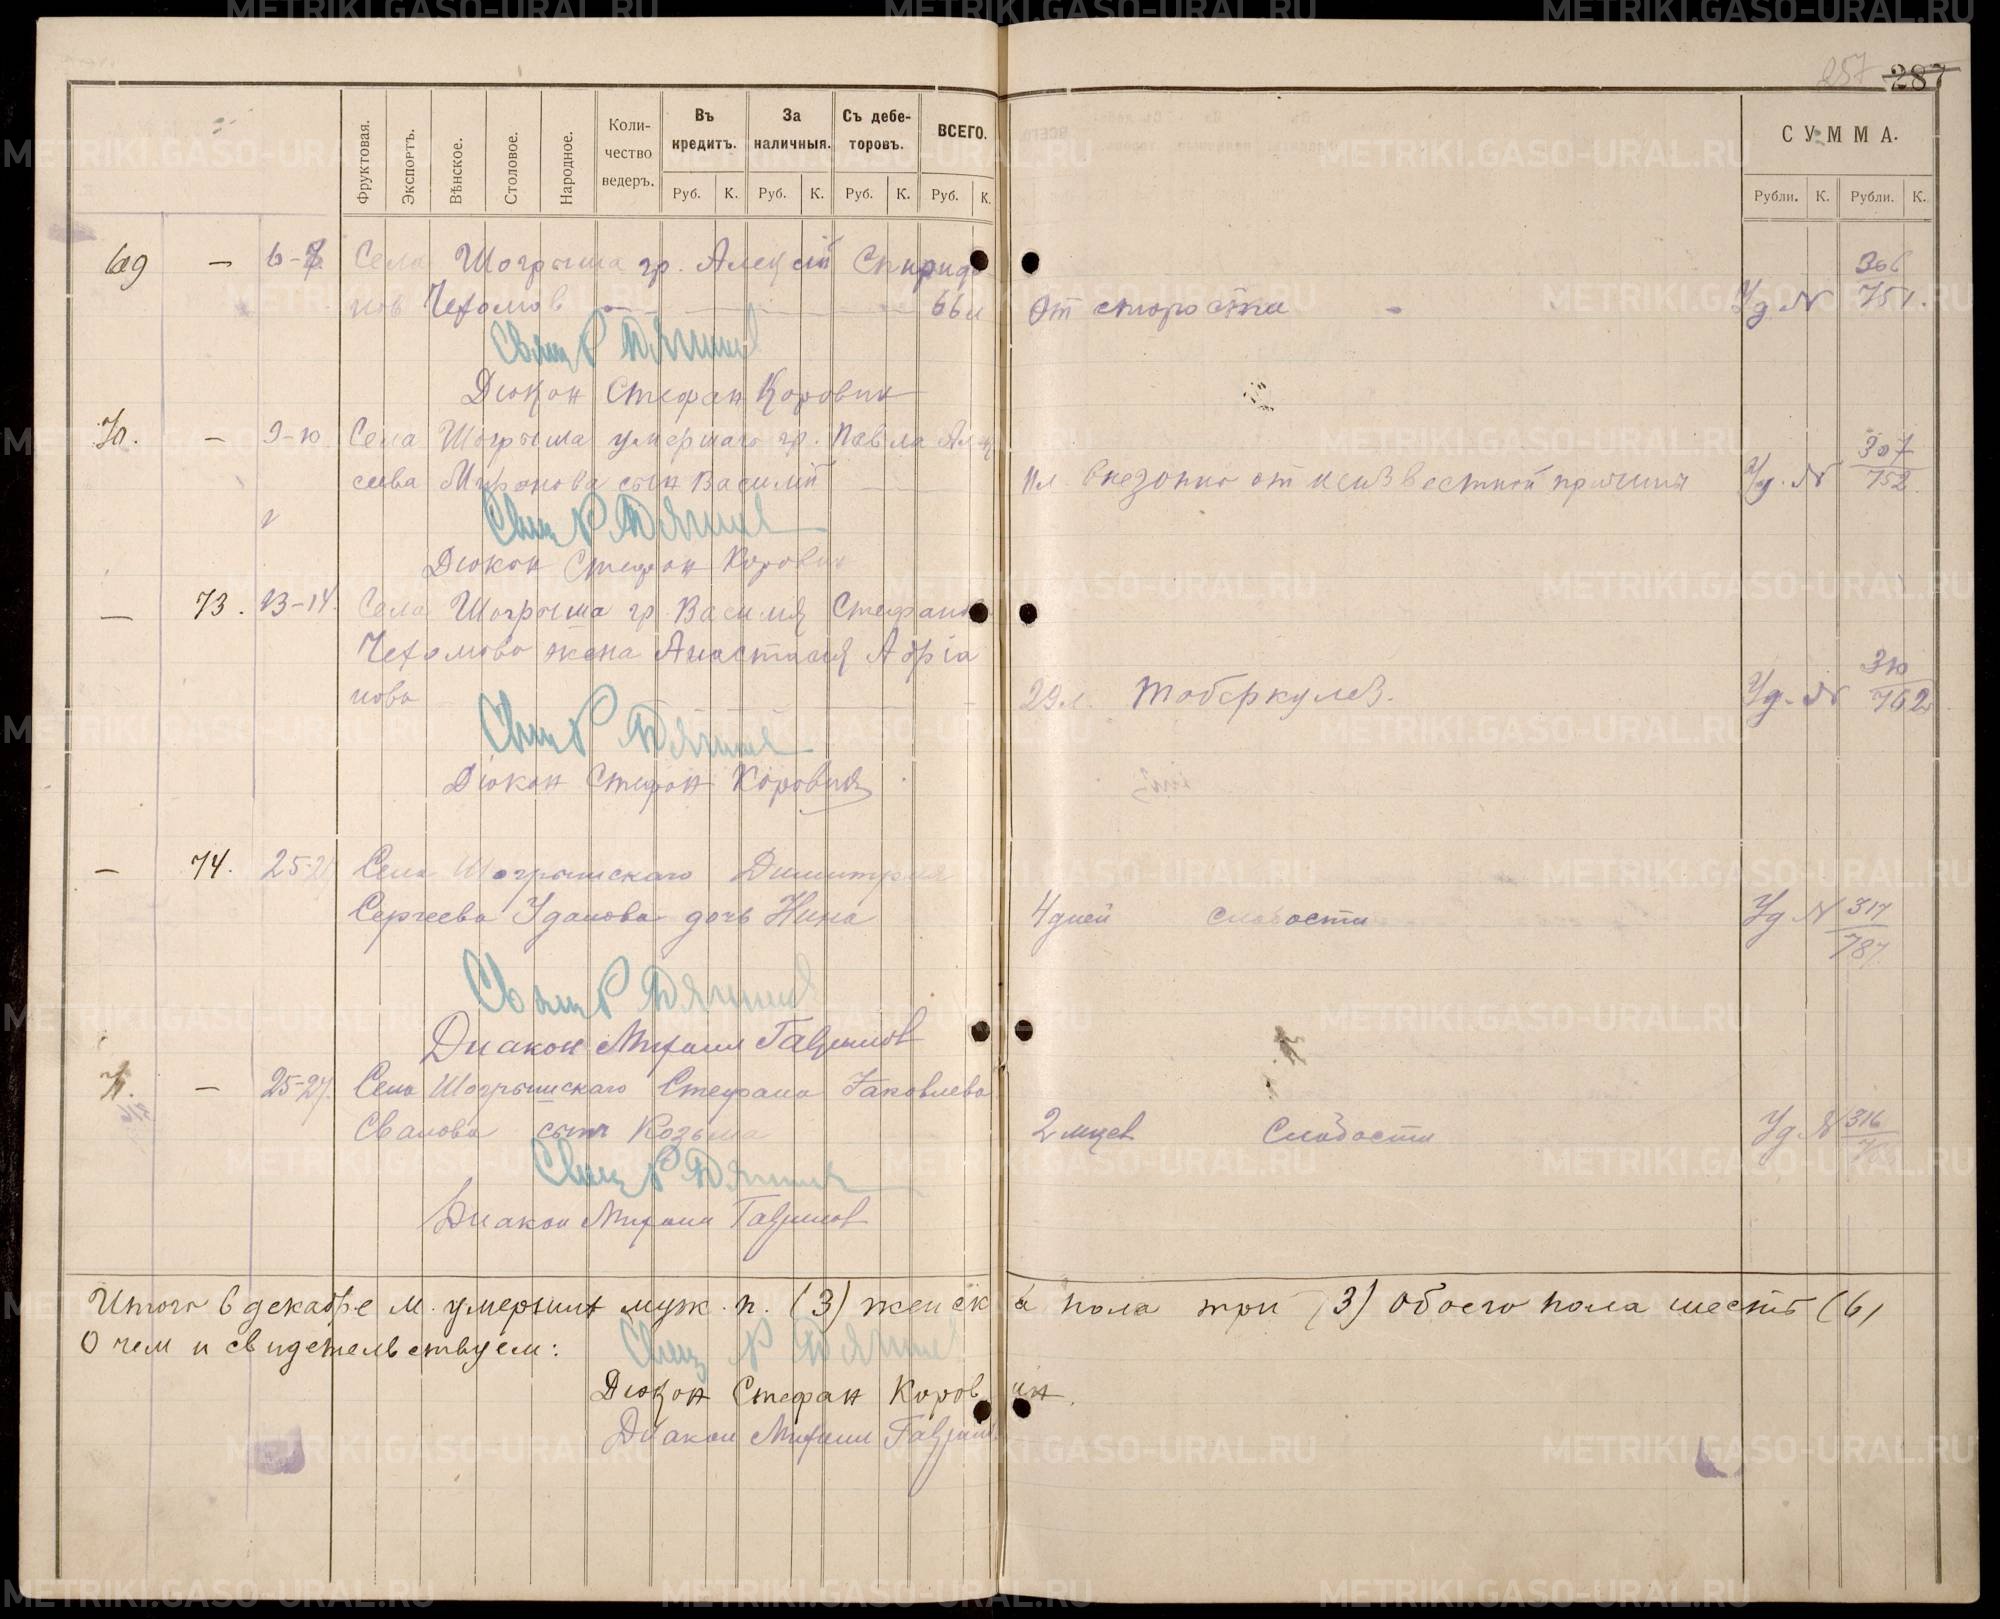 257 287
Фруктовая. Экспортъ. Вѣнское. Столовое. Народное. Коли-чество ведеръ. Въ кредитъ. За наличныя. Съ дебе-торовъ. ВСЕГО. СУММА.
Руб. К. Руб. К. Руб. К. Руб. К. Рубли. К. Рубли. К.
69 — 6-7 Села Шогрыша гр. Алексій Спиридо
306
нов Чехомов — 66 л От старости - Уд. № 751.
Свящ Р
Діокон Стефан Коровин
70. — 9-10 Села Шогрыша умершаго гр. Павла Алек
307
сеева Миронова сын Василій 11 л. внезопно от неизвестной причины Уд. № 752.
Свящ Р
Діокон Стефан Коровин
— 73. 13-14. Села Шогрыша гр. Василія Стефанов
Чехомова жена Анастасія Адріа
310
нова 29 л. тоберкулез. Уд. № 762
Свящ Р
Діокон Стефан Коровин
— 74. 25-2 Села Шогрышскаго Димитрія
Сергеева Уданова дочь Нина 4 дней слабости Уд № 317
787
Свящ Р
Диакон Михаил Гаврилов
71. — 25-27. Села Шогрышскаго Стефана Іаковлева
Свалова сын Козьма 2 мцев Слабости Уд № 316
Свящ Р
Диакон Михаил Гаврилов
Итого в декабре м. умерших муж. п. (3) женска пола три (3) обоего пола шесть (6)
О чем и свидетельствуем:
Свящ Р
Діокон Стефан Коровин.
Диакон Михаил Гаврилов
METRIKI.GASO-URAL.RU